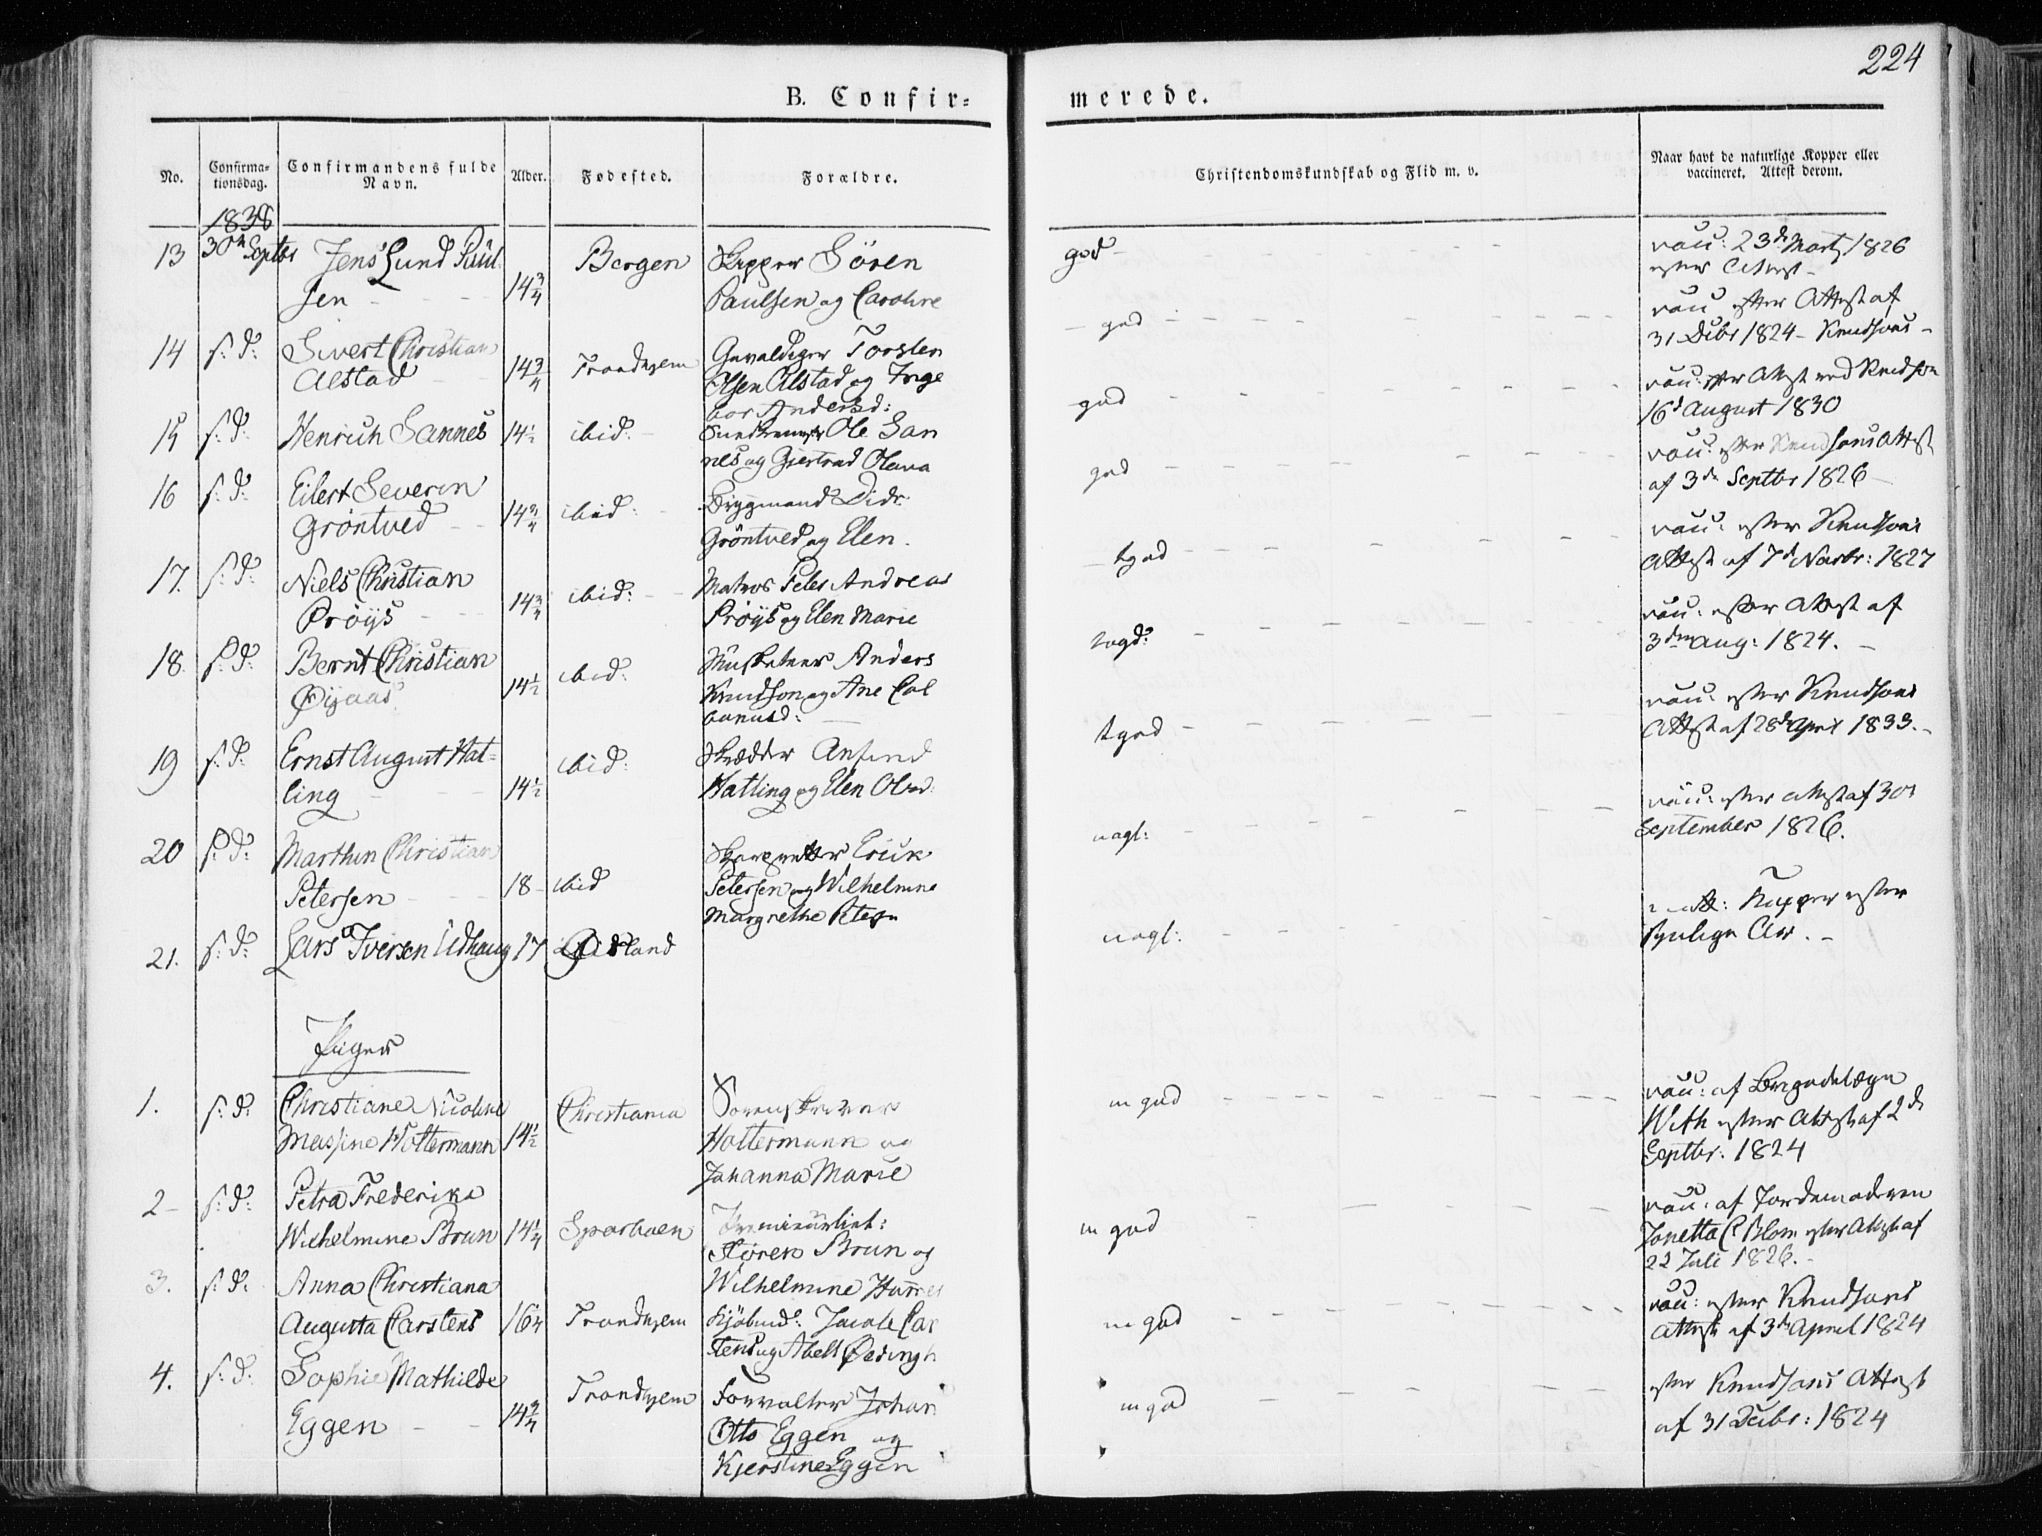 224
B. Confir-
merede.
No.
Confirma-
tionsdag.
Confirmandens fulde
Navn.
Alder.
Fødested.
Forældre.
Christendomskundskab og Flid m. v.
Naar havt de naturlige Kopper eller
vaccineret. Attest derom.
1838
13 30te Septbr Jens Lund Paul
sen 14 3/4 Bergen Skipper Sören
Paulsen og Caroline
god
vacc: 23de Marts 1826
efter Attest
14 s: d: Sivert Christian
Alstad 14 3/4 Trondhjem Gevaldiger Torsten
Olsen Alstad og Inge
bor Andersd:
god
vacc efter Attest af
31 Decbr 1824 - Knudsons
15 s: d: Henrich Sannes 14 1/2 ibid: Ole San
nes og Gjertrud Olava
god
vacc: efter Attest ved Knudson
16d August 1830
16 s: d: Eilert Severin
Gröntved 14 3/4 ibid: Brygmand Didr:
Gröntved og Elen
god
vacc: efter Knudsons Attest
af 3de Septbr 1826
17. s: d: Niels Christian
Pröys 14 3/4 ibid: Matros Peter Andreas
Pröys og Elen Marie
tgod
vacc: efter Knudsons
Attest af 7d Novbr: 1827
18. s: d: Bernt Christian
Øyaas 14 1/2 ibid: Musketeer Anders
Knudson og Ane
tgod:
vacc: efter Attest af
3die Aug: 1824.
19 s: d: Ernst August Hat-
ling 14 1/2 ibid: Skrædder
Hatling og Elen Olsd:
tgod
vacc: efter Knudsons
Attest af 28de April 1833.
20 s: d: Marthin Christian
Petersen 18 ibid Erik
Petersen og Wilhelmine
Margrethe
uagl:
vacc: efter Attest af 30te
September 1826.
21. s: d: Lars Iversen Udhaug 17
uagl:
Kopper efter
synlige Ar.
Piger
1. s: d: Christiane Nicoline
Massine Hottermann 14 1/2 Christiania Sorenskriver
Hottermann og
Johanna Marie
m god
vacc: af Brigadelæge
With efter Attest af 2d
Septbr: 1824
2 s: d: Petra Frederike
Wilhelmine Brun 14 1/4 Sparboen Premieurliet:
Brun og
Wilhelmine
m god
vacc: af Jordemoderen
Jonetta C Blom efter Attest af
22 Juli 1826.
3. s: d: Anna Christiana
Augusta Carstens 16 1/4 Trondhjem Kjöbmd: Jacob Car
stens og Abell
m god
vacc: efter Knudsons
Attest af 3de April 1824
4. s: d: Sophie Mathilde
Eggen 14 3/4 Trondhjem Forvalter Johan
Otto Eggen og
Kjerstine Eggen
m god
efter Knudsons Attest
af 31 Decbr: 1824